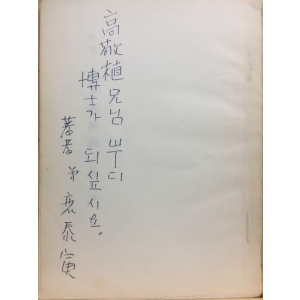 高敬植兄님 부디
博士가 되십시요。
著者 弟 袁泰寅